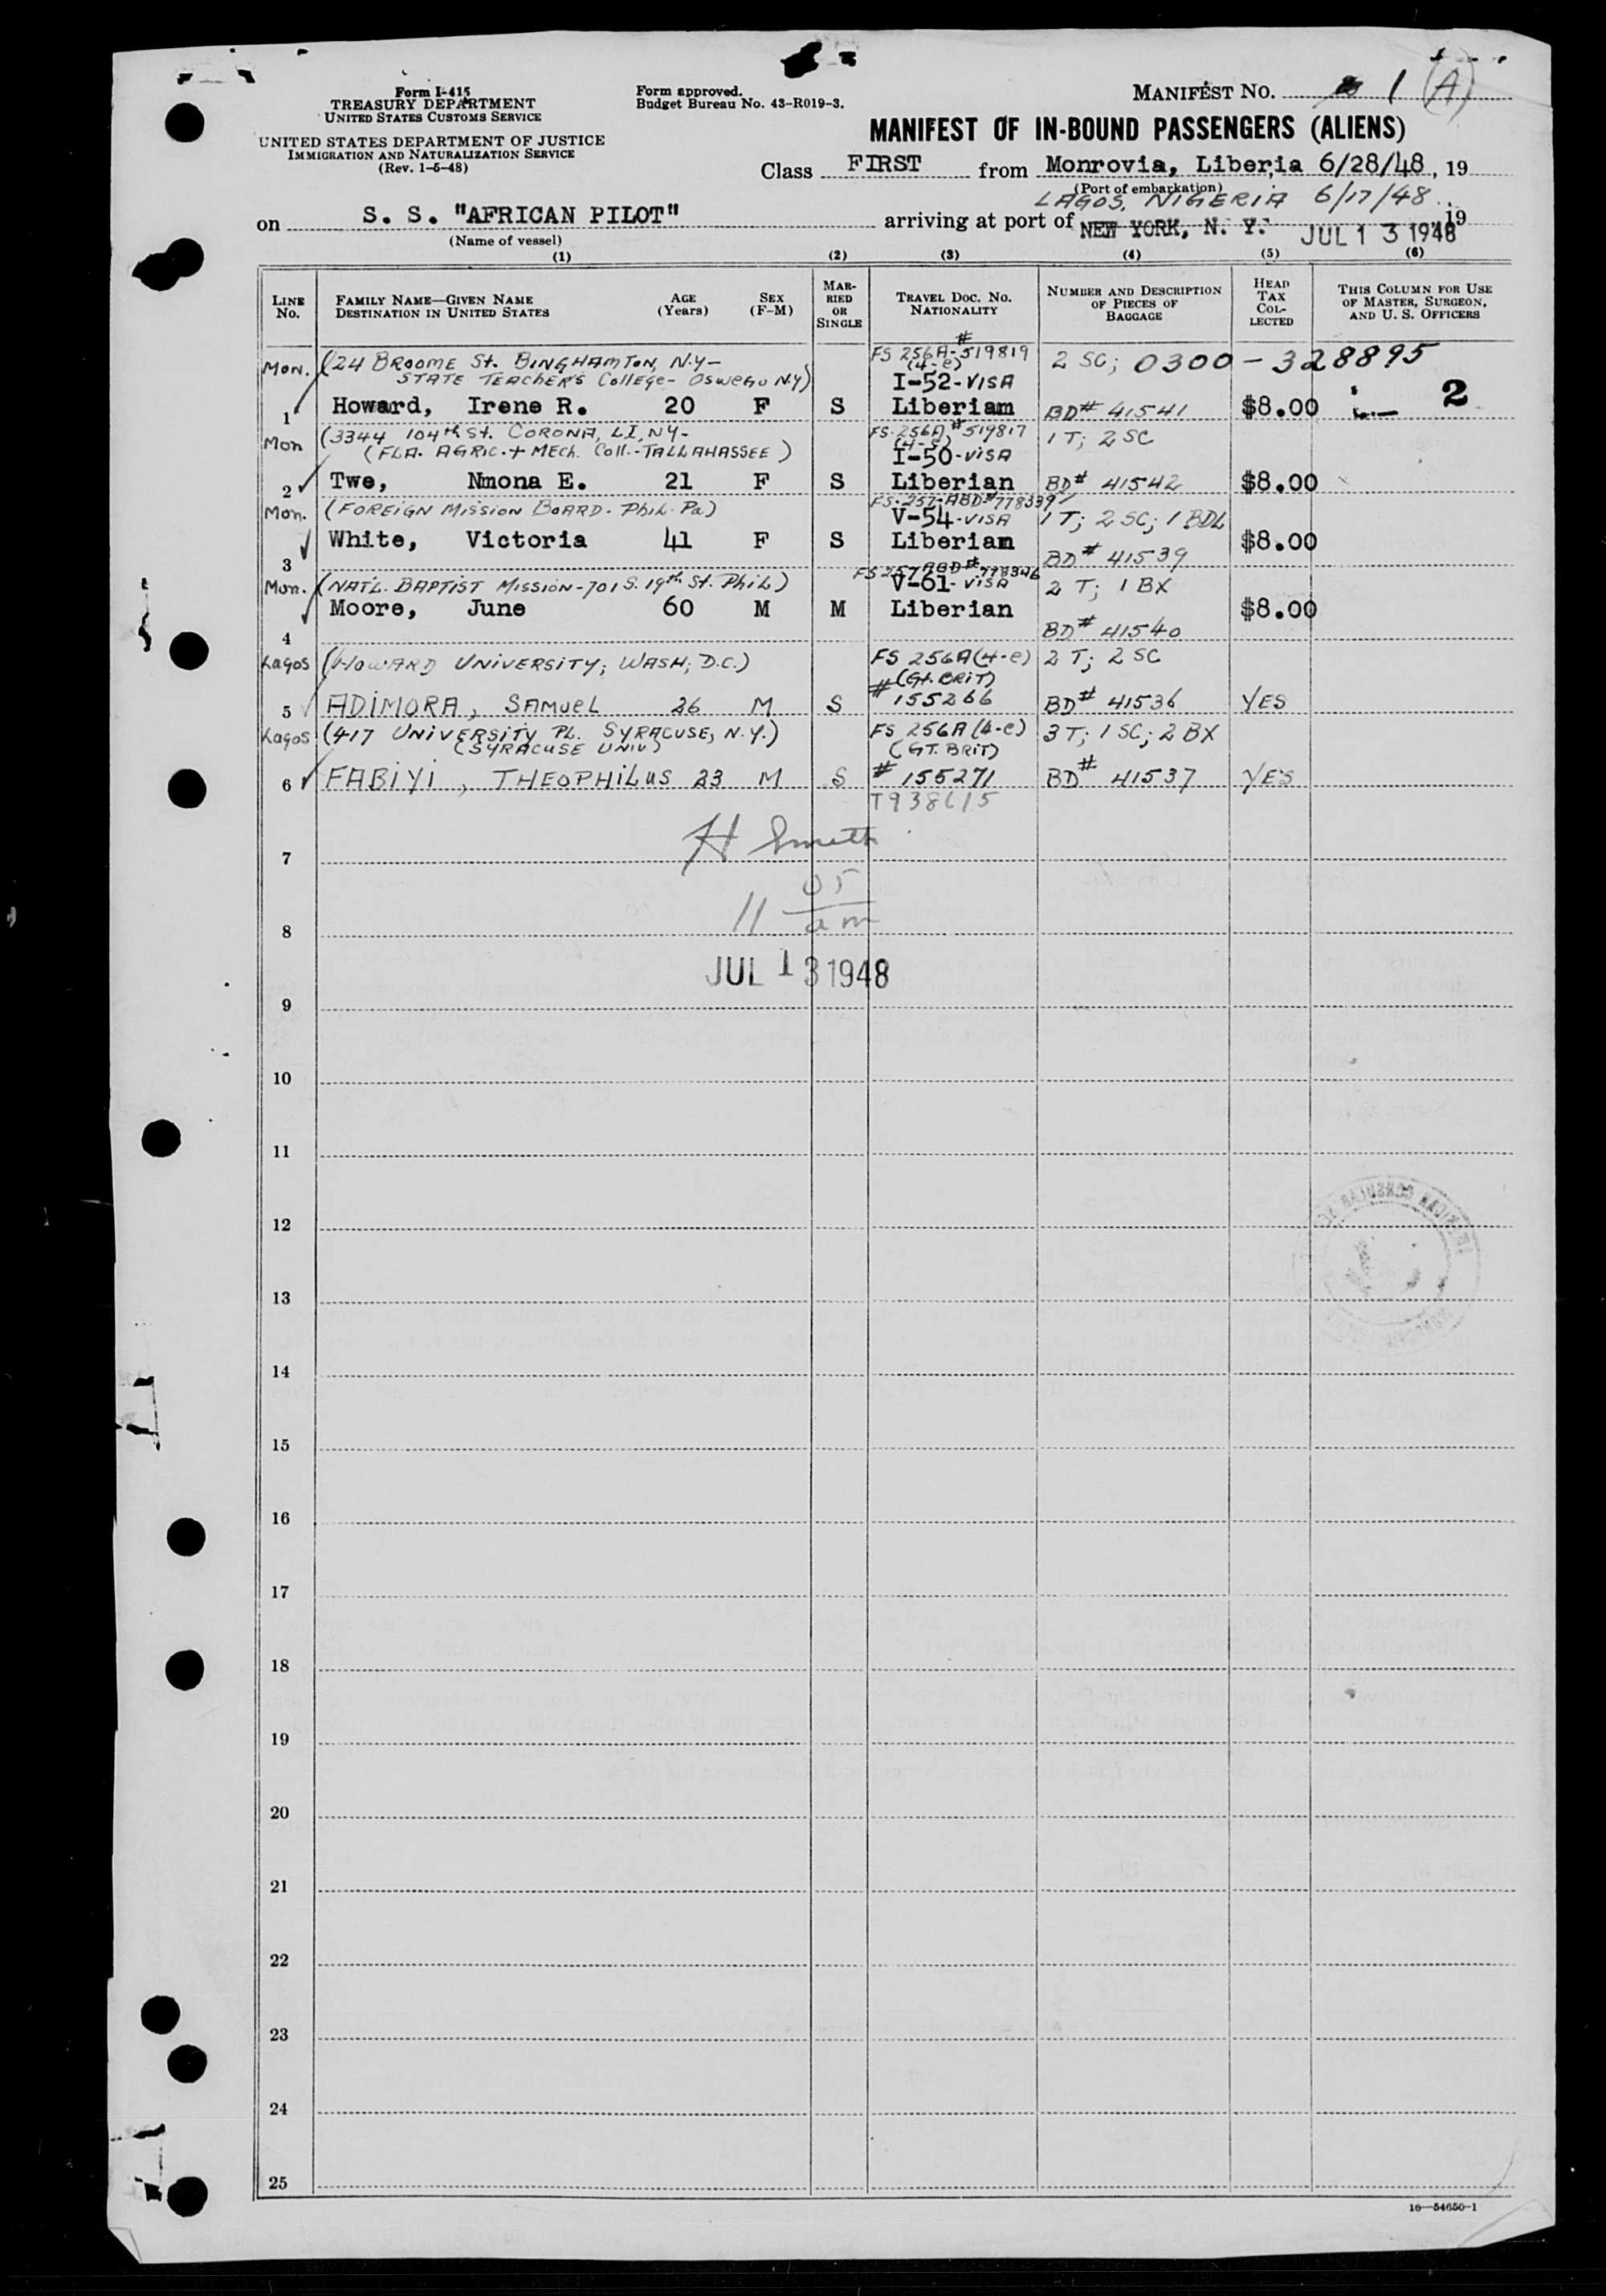 Form I-415
TREASURY DEPARTMENT
UNITED STATES CUSTOMS SERVICE
UNITED STATES DEPARTMENT OF JUSTICE
IMMIGRATION AND NATURALIZATION SERVICE
(Rev. 1-5-48)
Form approved.
Budget Bureau No. 43-R019-3.
MANIFEST NO. 1 (A)
MANIFEST OF IN-BOUND PASSENGERS (ALIENS)
Class FIRST from Monrovia, Liberia 6/28/48, 19
(Port of embarkation)
LAGOS, NIGERIA 6/17/48
on S. S. "AFRICAN PILOT" arriving at port of NEW YORK, N. Y. JUL 13 1948 19
(Name of vessel)
(1) (2) (3) (4) (5) (6)
LINE No. FAMILY NAME—GIVEN NAME DESTINATION IN UNITED STATES AGE (Years) SEX (F-M) MARRIED OR SINGLE TRAVEL DOC. NO. NATIONALITY NUMBER AND DESCRIPTION OF PIECES OF BAGGAGE HEAD TAX COLLECTED THIS COLUMN FOR USE OF MASTER, SURGEON, AND U. S. OFFICERS
Mon. (124 BROOME St. BINGHAMTON, N.Y- FS 256A-#519819 2 SC; 0300-328895
STATE TEACHER'S College- OSWEGO NY) (4-e) I-52-VISA
1 Howard, Irene R. 20 F S Liberiam BD# 41541 $8.00 2
Mon (3344 104th St. CORONA, L.I, NY- FS-256A #519817 1 T; 2 SC
(FLA. AGRIC. + MECh. Coll.-TALLAHASSEE) (4-e) I-50-VISA
2 Twe, Nmona E. 21 F S Liberian BD# 41542 $8.00
Mon. (FOREIGN MISSION BOARD. Phil. Pa) FS-257-ABD#778339 V-54-VISA 1 T; 2 SC; 1 BDL
3 White, Victoria 41 F S Liberian BD# 41539 $8.00
Mon. (NAT'L. BAPTIST MISSION-701 S. 19th St. Phil) FS 257 ABD #778346 V-61-VISA 2 T; 1 BX
4 Moore, June 60 M M Liberian BD# 41540 $8.00
Lagos (HOWARD UNIVERSITY; WASH; D.C.) FS 256A (4-e) 2 T; 2 SC
(Gt. BRIT)
5 ADIMORA, SAMUEL 26 M S #155266 BD# 41536 YES
Lagos (417 UNIVERSITY PL. SYRACUSE, N.Y.) FS 256A (4-e) 3 T; 1 SC; 2 BX
(SYRACUSE UNIV) (GT. BRIT)
6 FABIYI, THEOPHILUS 23 M S #155271 BD# 41537 YES
T938615
H Smith
7
11 05 am
8
JUL 13 1948
9
10
11
12
13
14
15
16
17
18
19
20
21
22
23
24
25
16—54650-1